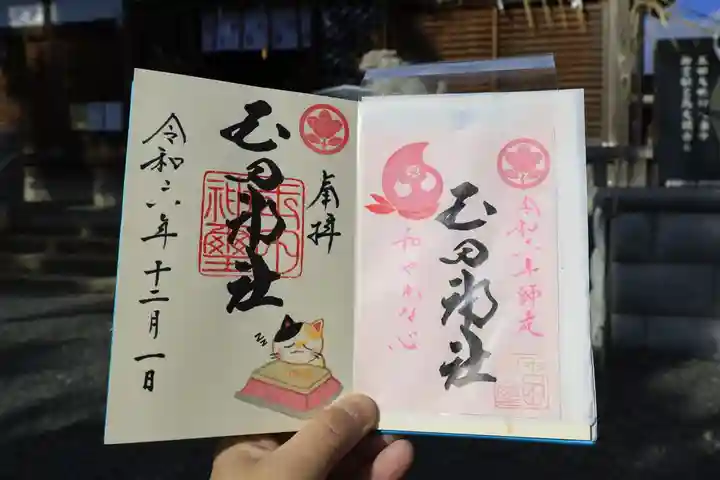 奉拝
玉田神社
令和六年十二月一日
zz
令和六年師走
玉田神社
和やかな心